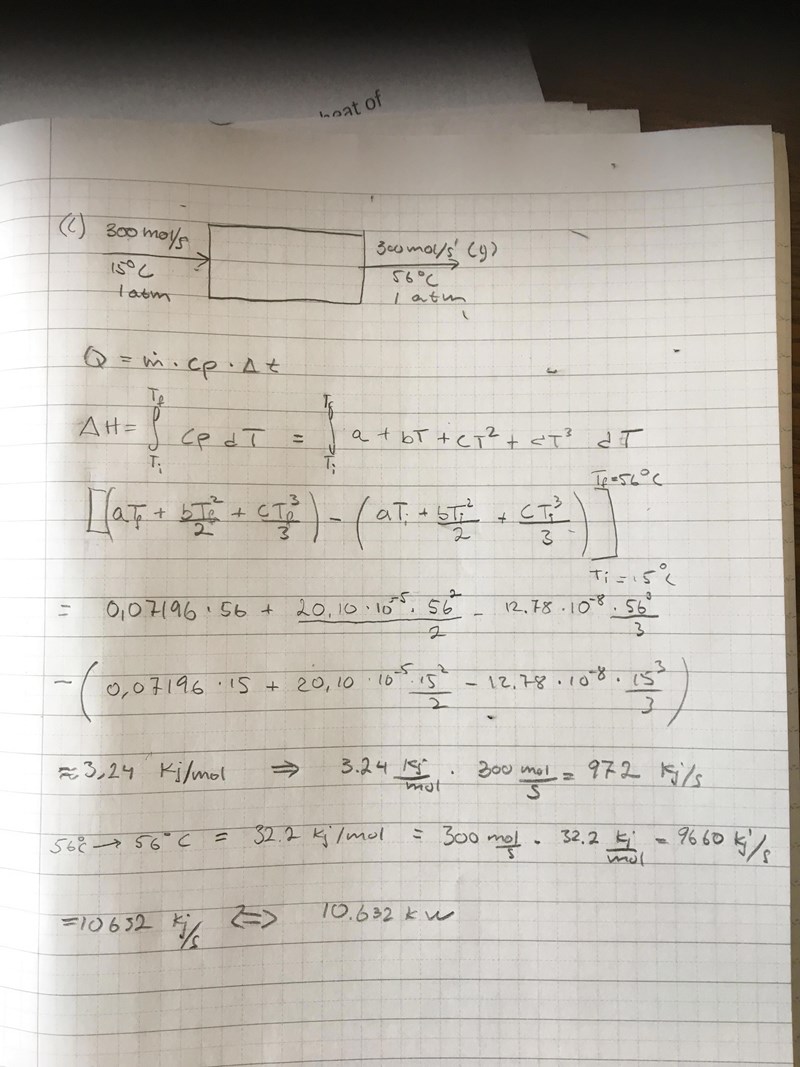 heat of
(c) 300 mol/s
15°C
1 atm
300 mol/s (g)
56°C
1 atm
Q = ṁ · Cp · Δt
ΔH = ∫_{Ti}^{Tf} Cp dT = ∫_{Ti}^{Tf} a + bT + cT² + dT³ dT
[(aTf + bTf²/2 + cTf³/3) - (aTi + bTi²/2 + cTi³/3)] Tf = 56°C
Ti = 15°C
= 0,07196 · 56 + 20,10 · 10⁻⁵ · 56²/2 - 12.78 · 10⁻⁸ · 56³/3
- (0,07196 · 15 + 20,10 · 10⁻⁵ · 15²/2 - 12.78 · 10⁻⁸ · 15³/3)
≈ 3,24 Kj/mol ⇒ 3.24 Kj/mol · 300 mol/s = 972 Kj/s
56°C → 56°C = 32.2 Kj/mol = 300 mol/s · 32.2 Kj/mol = 9660 Kj/s
= 10632 Kj/s ⇔ 10.632 kw